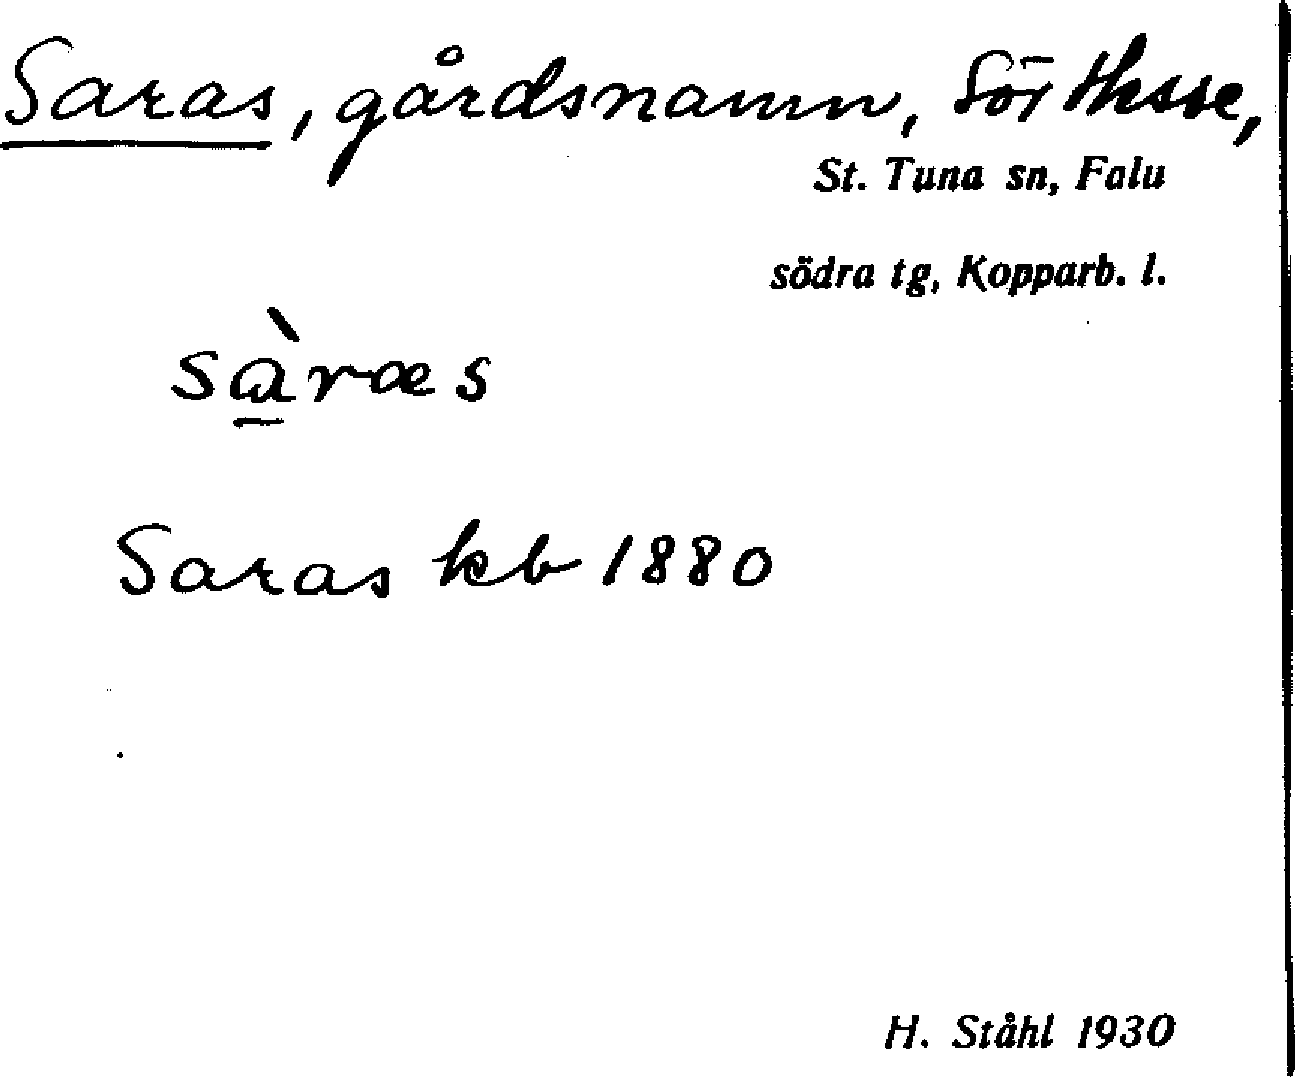 Saras, gårdsnamn, Sör
St. Tuna sn, Falu
södra tg, Kopparb. l.
sàræs
Saras kb 1880
H. Ståhl 1930